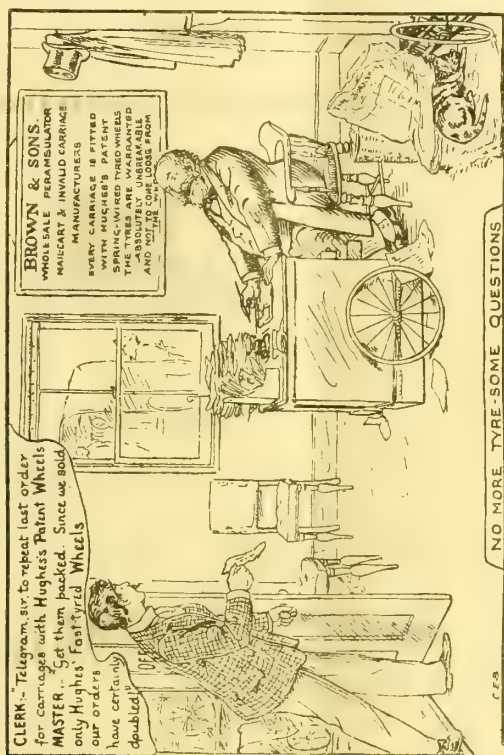 CLERK:- "Telegram, sir, to repeat last order
for carriages with Hughes's Patent Wheels
MASTER.- "Get them packed. Since we sold
only Hughes' Fast tyred Wheels
our orders
have certainly
doubled"
OFF
BROWN & SONS.
WHOLESALE PERAMBULATOR
MAILCART & INVALID CARRIAGE
MANUFACTURERS
EVERY CARRIAGE IS FITTED
WITH HUGHES'S PATENT
SPRING-WIRED TYRED WHEELS
THE TYRES ARE WARRANTED
ABSOLUTELY UNBREAKABLE
AND NOT TO COME LOOSE FROM
THE WH
NO MORE TYRE-SOME QUESTIONS